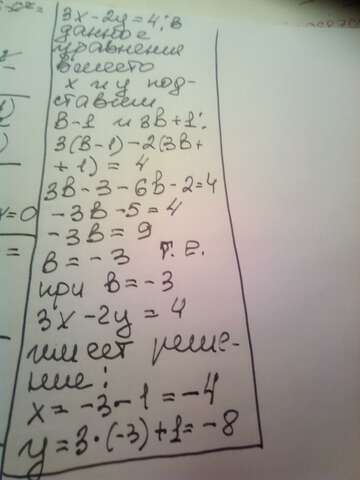 3x-2y=4; в
данное
уравнение
вместо
x и y под-
ставим
в-1 и 3в+1:
3(в-1)-2(3в+
+1)=4
3в-3-6в-2=4
-3в-5=4
-3в=9
в=-3 т.е.
при в=-3
3x-2y=4
имеет реше-
ние:
x=-3-1=-4
y=3·(-3)+1=-8